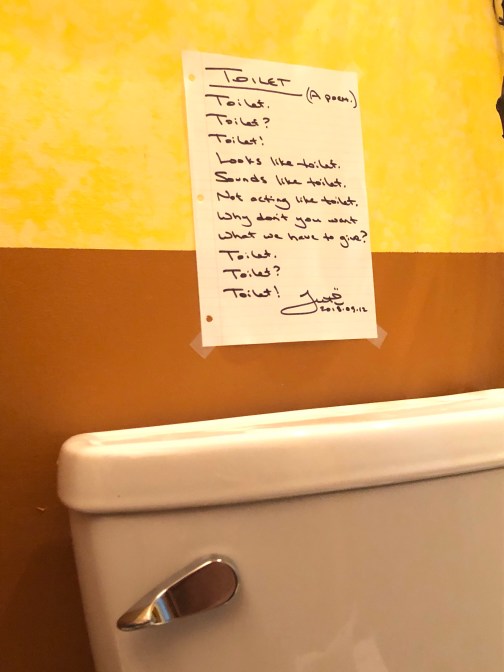 TOILET
(A poem.)
Toilet.
Toilet?
Toilet!
Looks like toilet.
Sounds like toilet.
Not acting like toilet.
Why don't you want
What we have to give?
Toilet.
Toilet?
Toilet!
2018.09.12